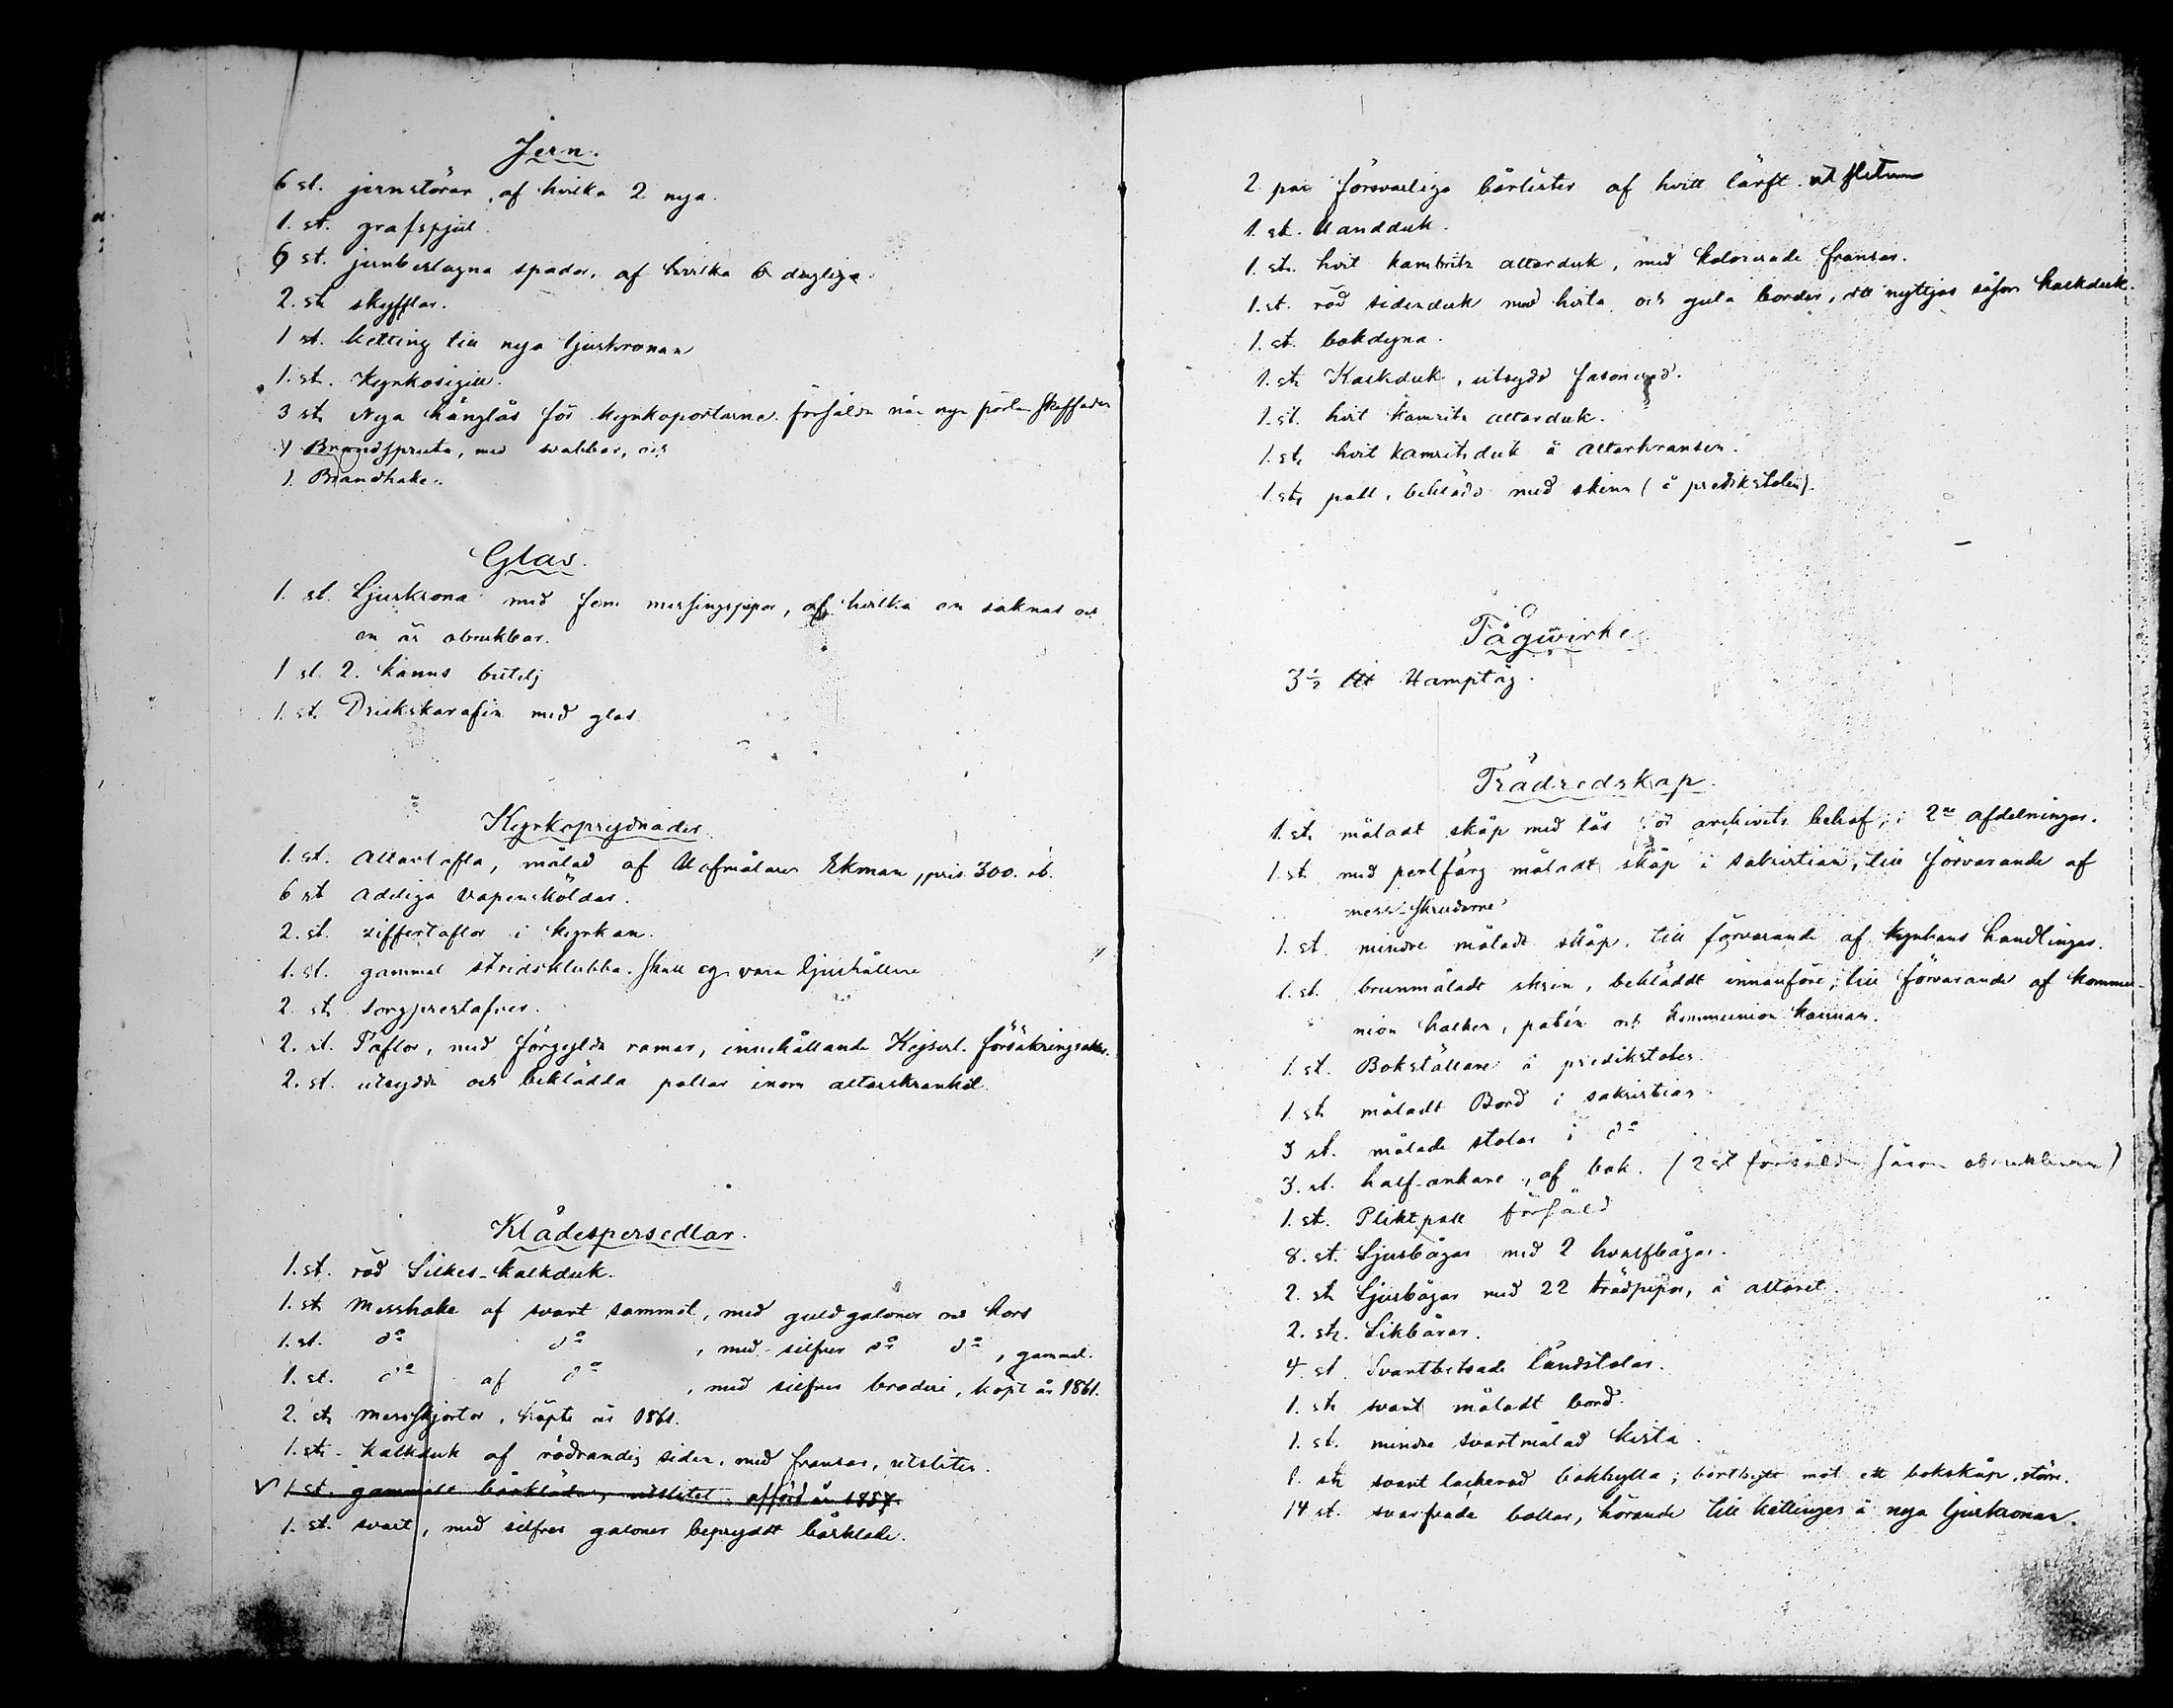 Jern.
6 st. jernstörar, af hvilka 2 nya.
1. st. grafspjut.
6 st. jernbeslagna spadar, af hvilka 6 dugliga
2. st. skyfflar.
1 st. ketting till nya ljuskronan
1. st. Kyrkosigill.
3 st. Nya hänglås för kyrkoportarne. försålda när nya portar skaffades
1 Brandspruta, med svabbar, och
1 Brandhake.
Glas.
1. st. Ljuskrona med fem messingspipor, af hvilka en saknas och
en är obrukbar.
1 st. 2. kanns butelj
1. st. Drickskarafin med glas
Kyrkoprydnader.
1. st. Altartafla, målad af Hofmålaren Ekman, pris 300. rb.
6 st Adeliga Vapensköldar.
2. st. siffertaflor i kyrkan.
1. st. gammal stridsklubba. skall ega vara ljushållare
2. st. Sorgprestafvar.
2. st. Taflor, med förgyllda ramar, innehållande Kejserl. försäkringsakter.
2. st. utsydda och beklädda pallar inom altarskranket.
Klädespersedlar.
1. st. röd Silkes-kalkduk.
1. st. Messhake af svart sammet, med guldgaloner och kors
1. st. do do, med silfver do do, gammal.
1. st. do af do, med silfver broderi, köpt år 1861.
2. st. messskjortor, köpte år 1861.
1. st. Kalkduk af rödrandig siden, med fransar, utsliten.
1 st. gammalt bårkläde, utslitet. afförd år 1857.
1. st. svart, med silfver galoner beprydt bårkläde.
2. par försvarliga bårlister af hvitt lärft. utslitna
1. st. Handduk.
1. st. hvit kambrits altarduk, med kolorerade fransar.
1. st. röd sidenduk med hvita och gula bårder, att nyttjas såsom kalkduk.
1. st. bokdyna.
1. st. Kalkduk, utsydd fasonerad.
1. st. hvit kamrits altarduk.
1. st. hvit kamritsduk å altarkransen.
1. st. pall, beklädd med skinn (å predikstolen).
Tågwirke
3 1/2 Hamptåg.
Trädredskap.
1. st. måladt skåp med lås för archivets behof, i 2ne afdelningar.
1. st. med perlfärg måladt skåp i sakristian, till förvarande af
mess-skrudarne
1. st. mindre måladt skåp, till förvarande af kyrkans handlingar.
1. st. brunmåladt skrin, beklädt innanföre, till förvarande af kommu-
nion kalken, patén och kommunion kannan.
1. st. Bokställare å predikstolen.
1. st. måladt Bord i sakristian
3 st. målade stolar i do
3. st. half-ankare, af bok. (2 st försålda såsom obrukbara)
1. st. Pliktpall försåld
8. st. Ljusbågar med 2 hvarfbågar.
2. st. Ljusbågar med 22 trädpipor, å altaret
2. st. Likbårar.
4 st. Svartbetsade länstolar.
1. st. svart måladt bord.
1. st. mindre svartmålad kista.
1. st. svart lackerad bokhylla; bortbytt mot ett bokskåp, större.
14 st. svarfvade bollar, hörande till kettingen å nya ljuskronan.